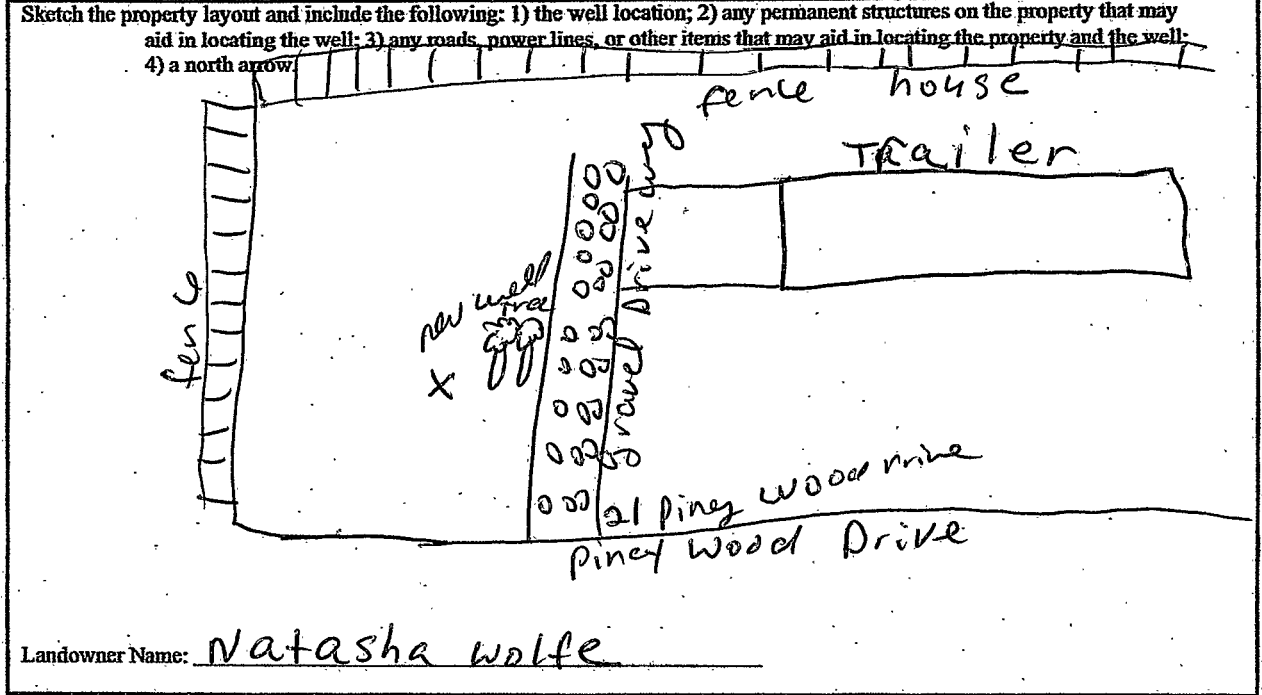 Sketch the property layout and include the following: 1) the well location; 2) any permanent structures on the property that may
aid in locating the well; 3) any roads, power lines, or other items that may aid in locating the property and the well;
4) a north arrow.
fence house
Trailer
Gravel Drive way
new well
tree
X
fence
21 Piney Wood Drive
Piney Wood Drive
Landowner Name: Natasha Wolfe